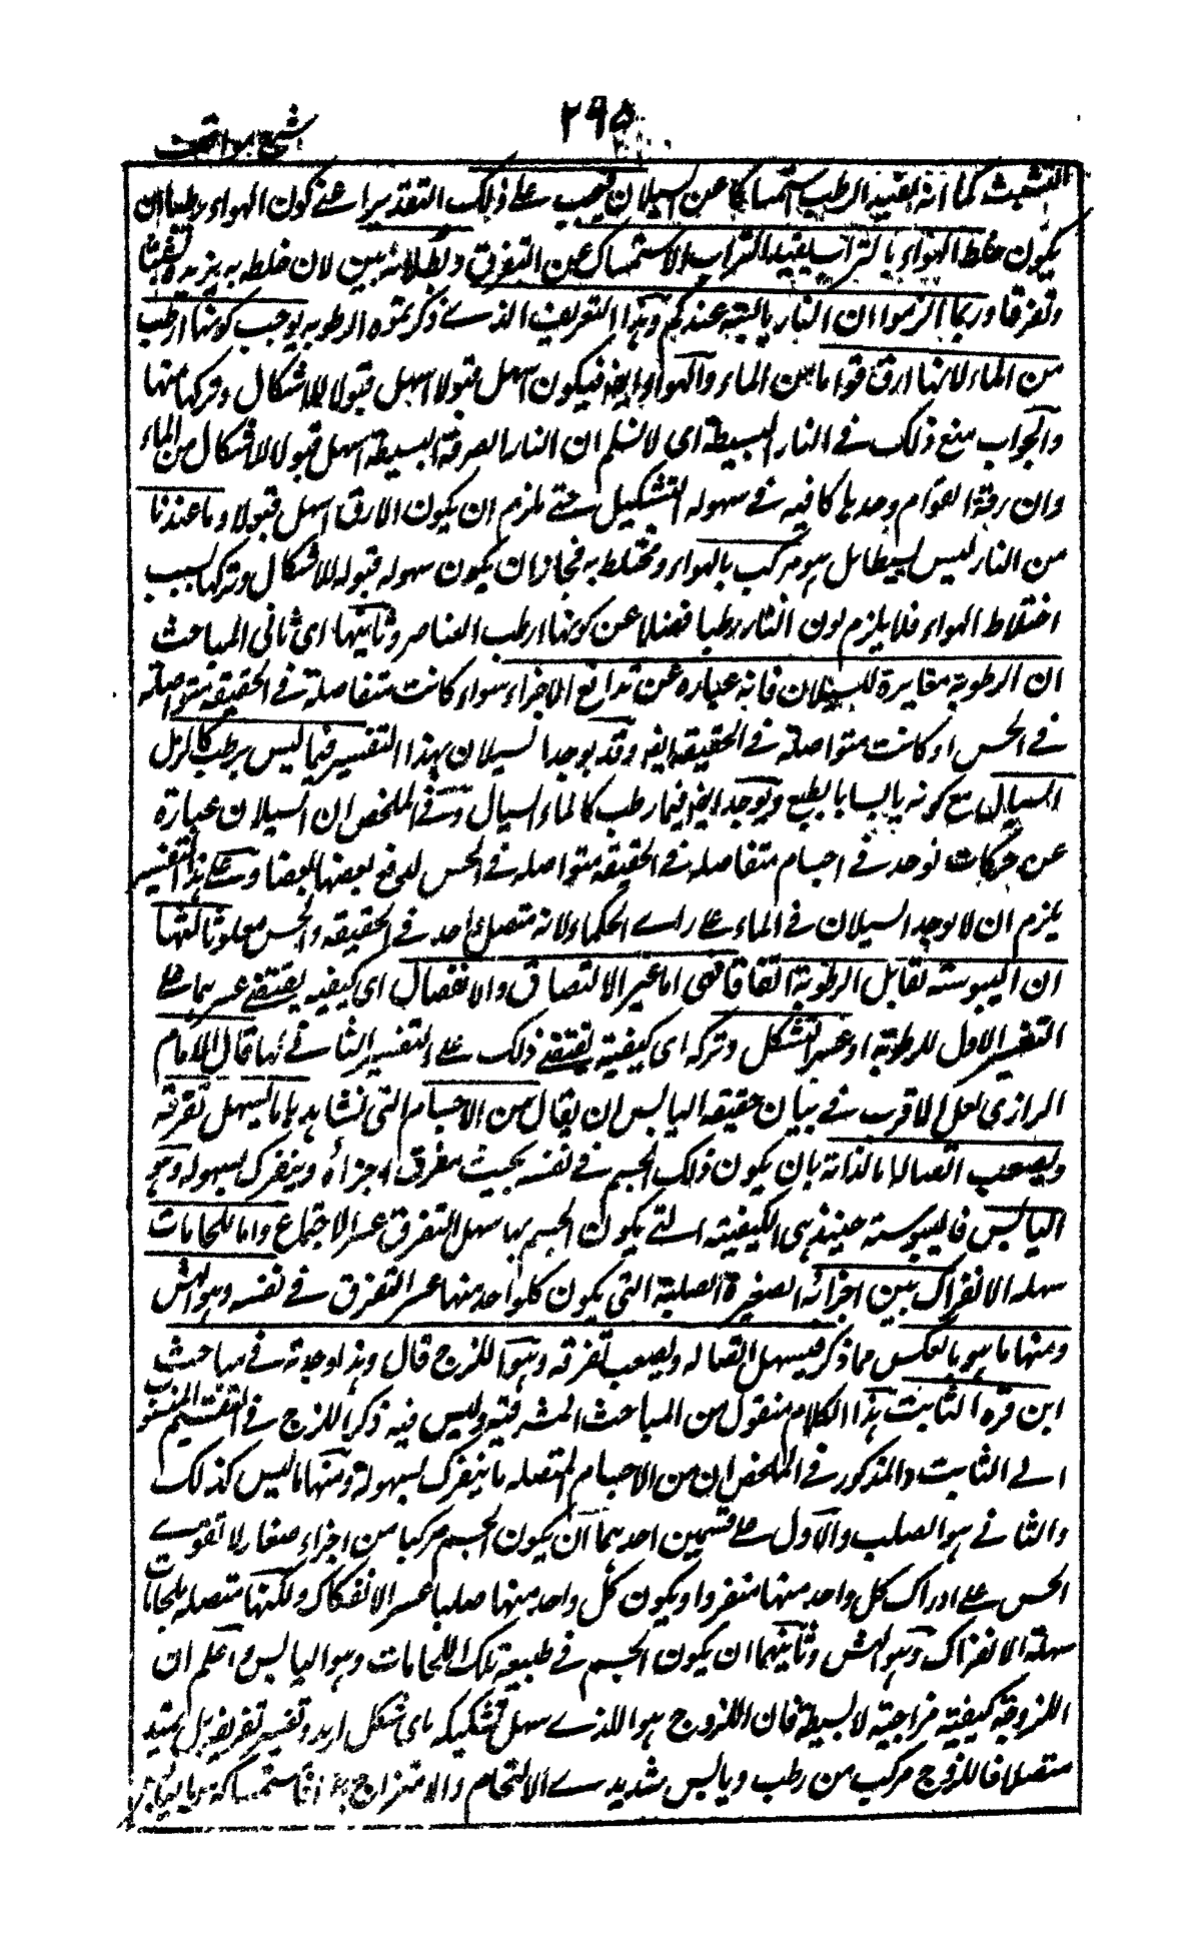 ٢٩٥
شرح مواقف
التشبث كما انه يفيد الرطب استمساكا عن السيلان فيجب على ذلك التقدير اعنى كون الهواء رطبا ان
يكون خلط الهواء بالتراب يفيد التراب الاستمساك عن التفرق وبطلانه بين لان خلطه به يزيده تشتتا
وتفرقا وربما الزموا ان النار يابسة عندكم وهذا التعريف الذى ذكرتموه للرطوبه يوجب كونها ارطب
من الماء لانها ارق قواما من الماء والهواء ايضا فيكون اسهل قبولا اسهل قبولا للاشكال وتركها منها
والجواب منع ذلك فى النار البسيطة اى لا نسلم ان النار الصرفة البسيطة اسهل قبولا للاشكال من الماء
وان رقة القوام وحدها كافيه فى سهوله التشكيل حتى يلزم ان يكون الارق اسهل قبولا وما عندنا
من النار ليس بسيطا بل هو مركب بالهواء ومختلط به فجاز ان يكون سهوله قبوله للاشكال وتركها بسبب
اختلاط الهواء فلا يلزم كون النار رطبا فضلا عن كونها ارطب العناصر وثانيها اى ثانى المباحث
ان الرطوبة مغايرة للسيلان فانه عباره عن تدافع الاجزاء سواء كانت متفاصلة فى الحقيقه متواصلة
فى الحس او كانت متواصلة فى الحقيقه ايضا وقد يوجد السيلان بهذا التفسير فيما ليس برطب كالرمل
السيال مع كونه يابسا بالطبع ويوجد ايضا فيما رطب كالماء السيال وفى الملخص ان السيلان عبارة
عن حركات توجد فى اجسام متفاصله فى الحقيقه متواصله فى الحس لدفع بعضها بعضا وعلى هذا التفسير
يلزم ان لا يوجد السيلان فى الماء على راى الحكماء لانه متصل واحد فى الحقيقه والحس معا وثالثها
ان اليبوسة تقابل الرطوبة اتفاقا فهى اما عسر الالتصاق والانفصال اى كيفيه يقتضى عسرهما على
التفسير الاول للرطوبة او عسر التشكل وتركه اى كيفية يقتضى ذلك على التفسير الثانى لها قال الامام
الرازى لعل الاقرب فى بيان حقيقه اليابس ان يقال من الاجسام التى نشاهدها ما يسهل تفرقه
ويصعب اتصاله اما لذاته بان يكون ذلك الجسم فى نفسه بحيث يتفرق اجزاؤه وينفرك بسهوله وهو
اليابس فاليبوسة حينئذ هى الكيفية التى يكون الجسم بها سهل التفرق عسر الاجتماع واما للحامات
سهله الانفراك بين اجزائه الصغيرة الصلبة التى يكون كل واحد منها عسر التفرق فى نفسه وهو الهش
ومنها ما هو بالعكس مما ذكر فيسهل اتصاله ويصعب تفرقه وهو اللزج قال وهذا وجدته فى مباحث
ابن قره الثابت هذا الكلام منقول من المباحث المشرقية وليس فيه ذكر اللزج فى التقسيم المنسوب
الى الثابت والمذكور فى الملخص ان من الاجسام المتصله ما ينفرك بسهولة ومنها ما ليس كذلك
والثانى هو الصلب والاول على قسمين احدهما ان يكون الجسم مركبا من اجزاء صغار لا تقوى
الحس على ادراك كل واحد منها منفردا ويكون كل واحد منها صلبا عسر الانفكاك ولكنها متصله بلحامات
سهلة الانفراك وهو الهش وثانيهما ان يكون الجسم فى طبيعة تلك اللحامات وهو اليابس واعلم ان
اللزوجة كيفيته مزاجية لا بسيطة فان اللزوج هو الذى سهل تشكيكه باى شكل اريد وتعسر تفريقه بل يمتد
متصلا فاللزوج مركب من رطب ويابس شديدى الالتحام والامتزاج جدا فاستمساكه